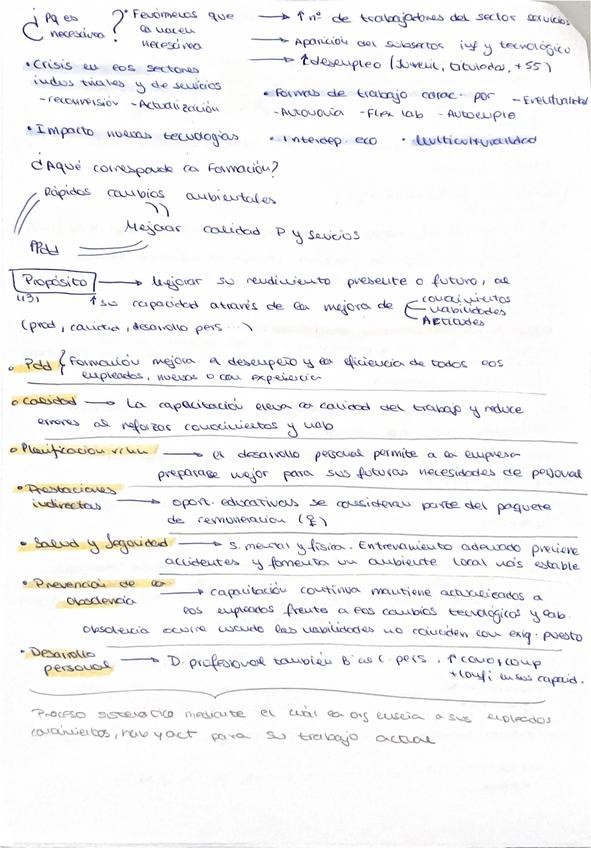 ¿Pq es necesaria? Fenómenos que la hacen necesaria
→ ↑ nº de trabajadores del sector servicios
→ Aparición del subsector inf y tecnológico
→ ↑ desempleo (Juvenil, titulados, +55)
• Crisis en los sectores industriales y de servicios
- reconversión - Actualización
• Formas de trabajo carac. por - Eventualidad
- Autonomía - Flex lab - Autoemple
• Impacto nuevas tecnologías • Interdep. eco • Multiculturalidad
¿A qué corresponde la Formación?
Rápidos cambios ambientales
Mejorar calidad P y Servicios
Propósito → Mejorar su rendimiento presente o futuro, al
↑ su capacidad através de la mejora de conocimientos
habilidades
Actitudes
(prod, calidad, desarrollo pers...)
• Pdd { Formación mejora el desempeño y la eficiencia de todos los
empleados, nuevos o con experiencia
• Calidad → La capacitación eleva la calidad del trabajo y reduce
errores al reforzar conocimientos y hab
• Planificación rrhh → el desarrollo personal permite a la empresa
prepararse mejor para sus futuras necesidades de personal
• Prestaciones indirectas → oport. educativas se consideran parte del paquete
de remuneración
• Salud y Seguridad → S. mental y física. Entrenamiento adecuado previene
accidentes y fomenta un ambiente laboral más estable
• Prevención de la obsolencia → capacitación continua mantiene actualizados a
los empleados frente a los cambios tecnológicos y lab.
obsolencia ocurre cuando las habilidades no coinciden con exig. puesto
• Desarrollo personal → D. profesional también B. pers. ↑ cono, comp
+ confi en sus capacid.
Proceso sistemático mediante el cuál la org enseña a sus empleados
conocimientos, hab y act para su trabajo actual